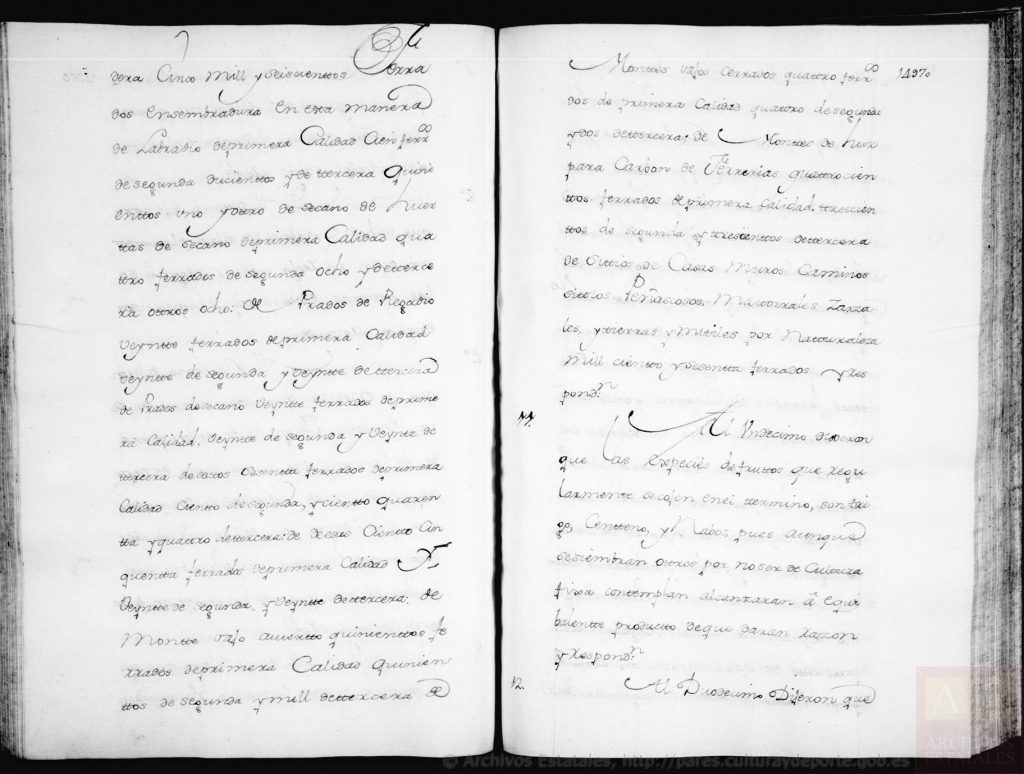 dera Cinco Mill y Seiscienttos Ferra
dos Ensembradura En esta Manera
de Labradio de primera Calidad Cien ferr<sup>os</sup>
de segunda duscienttos y de ttercera quini
enttos uno y ottro de secano de huer
ttas de secano de primera Calidad qua
ttro ferrados de segunda ocho y de tterce
ra ottros ocho: de Prados de Regadio
Veyntte ferrados de primera Calidad
veyntte de segunda y Veyntte de ttercera
de Prados de secano Veyntte ferrados de prime
ra Calidad, Veyntte de segunda y Veynte de
ttercera de sotos Sesentta ferrados de primera
Calidad Ciento de segunda, y cientto quaren
tta y quattro de ttercera: de Ciento Cin
quentta ferrados de primera Calidad
Veyntte de segunda y Veyntte de ttercera: de
Montte vajo avierto quinienttos fe
rrados de primera Calidad quinien
ttos de segunda y mill de ttercera de
Monttes vajos Cerrados quattro ferr
dos de primera Calidad quattro de segunda
y dos de ttercera; de Monttes de
para Carbon de Ferrerias quattrocien
ttos ferrados de primera Calidad. ttrescien
ttos de segunda y ttrescienttos de ttercera
de Sittios de Casas Muros Caminos
sittios Peñascosos, Mattorrales Zarza
les, y ttierras Ynutiles por Natturaleza
Mill cientto y sesentta ferrados y Res
pond<sup>n</sup>
11. Al Undecimo dixeron
que las Especies de fruttos que regu
larmente se cojen en el termino, son tri
go, Centteno, y Nabos pues aunque
se siembran ottros por no ser de Cultura
fixa contemplan alcanzaran â Equi
balentte producto de que daran razon
y Respond<sup>n</sup>
12. Al Duodecimo Dijeron que
1497
© Archivos Estatales, http://pares.culturaydeporte.gob.es
ARCHIVOS
ESTATALES